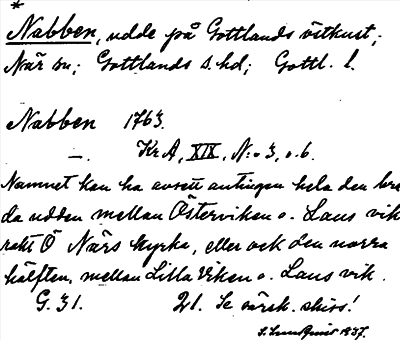 *
Nabben, udde på Gottlands östkust;
När sn; Gottlands s. hd; Gottl. l.
Nabben 1763.
—. KrA, XIX, N:o 3, o. 6.
Namnet kan ha avsett antingen hela den bre-
da udden mellan Österviken o. Laus vik
rakt Ö När​s kyrka, eller ock den norra
hälften, mellan Lilla Viken o. Laus vik.
G. 31. 21. Se särsk. skiss!
1937.